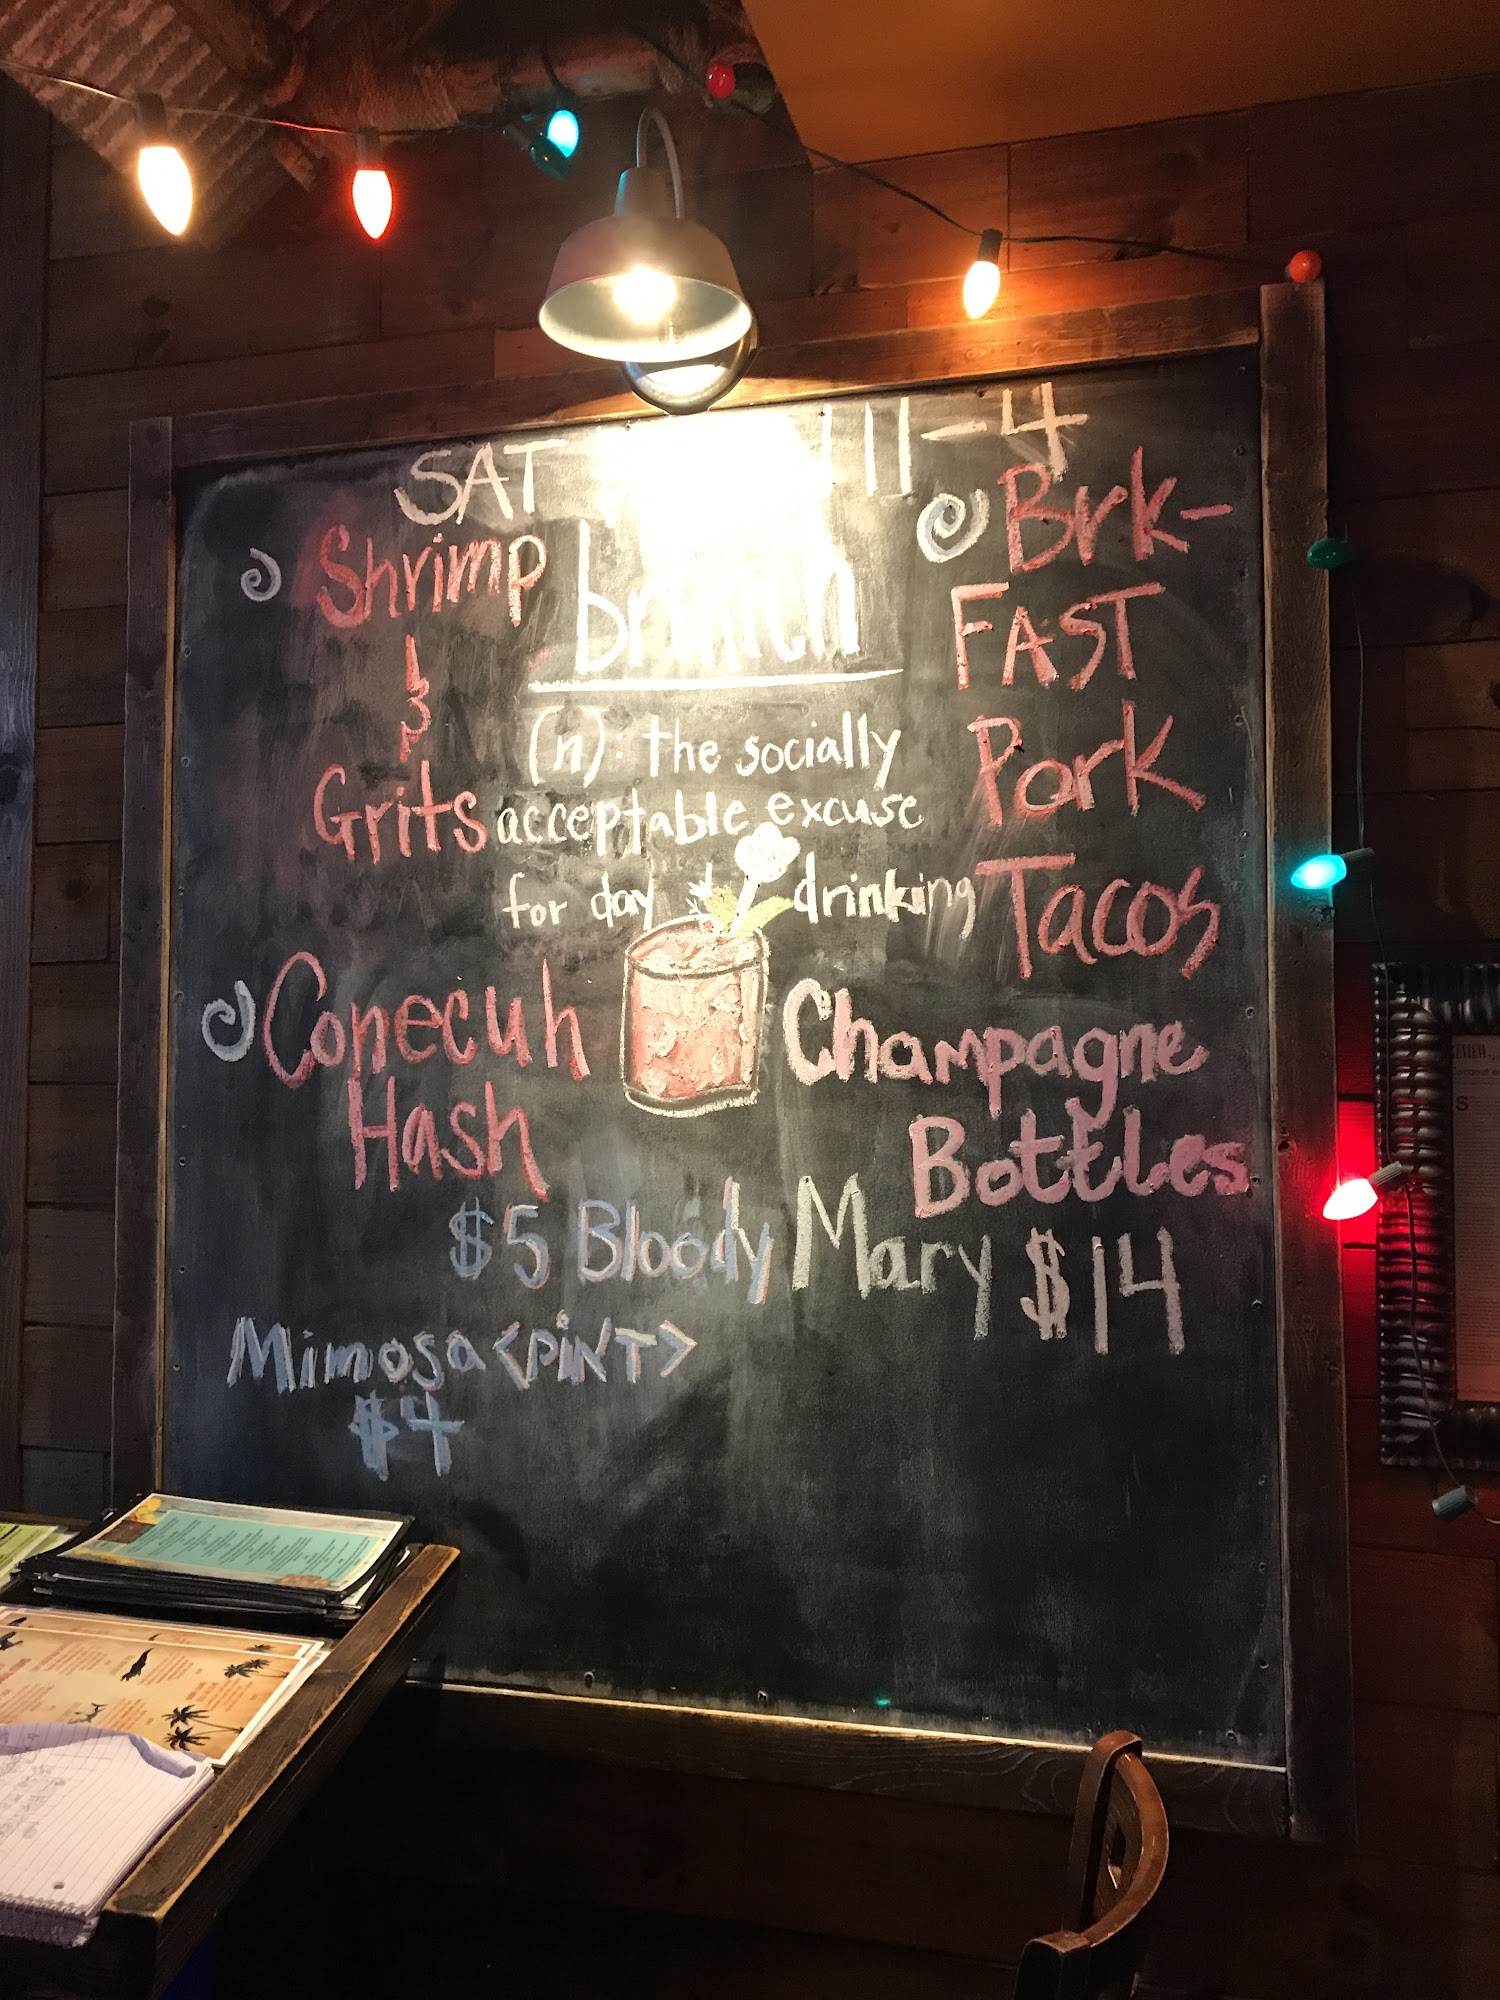 SAT 11-4
brunch
(n): the socially
acceptable excuse
for day drinking
Shrimp
&
Grits
Conecuh
Hash
Brk-
FAST
Pork
Tacos
Champagne
Bottles
$14
$5 Bloody Mary
Mimosa <PiNT>
$4